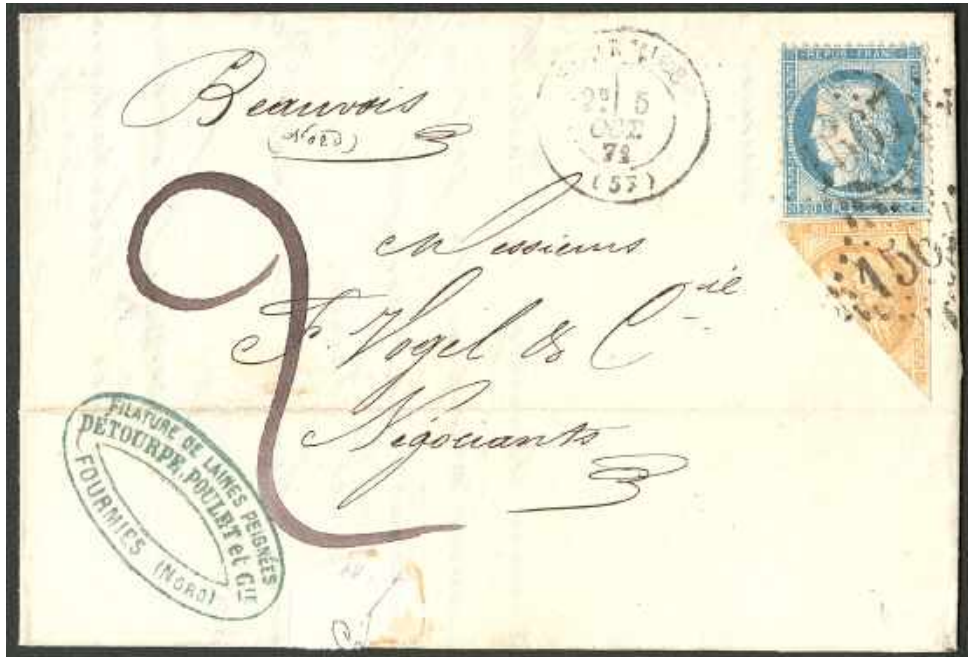 Beauvois
(Nord)
2E 5
OCT.
72
(57)
REPUB. FRANC.
156
Messieurs
F. Vogel & Cie
Négociants
2
FILATURE DE LAINES PEIGNÉES
DÉTOURPE, POULET et Cie
FOURMIES (NORD)